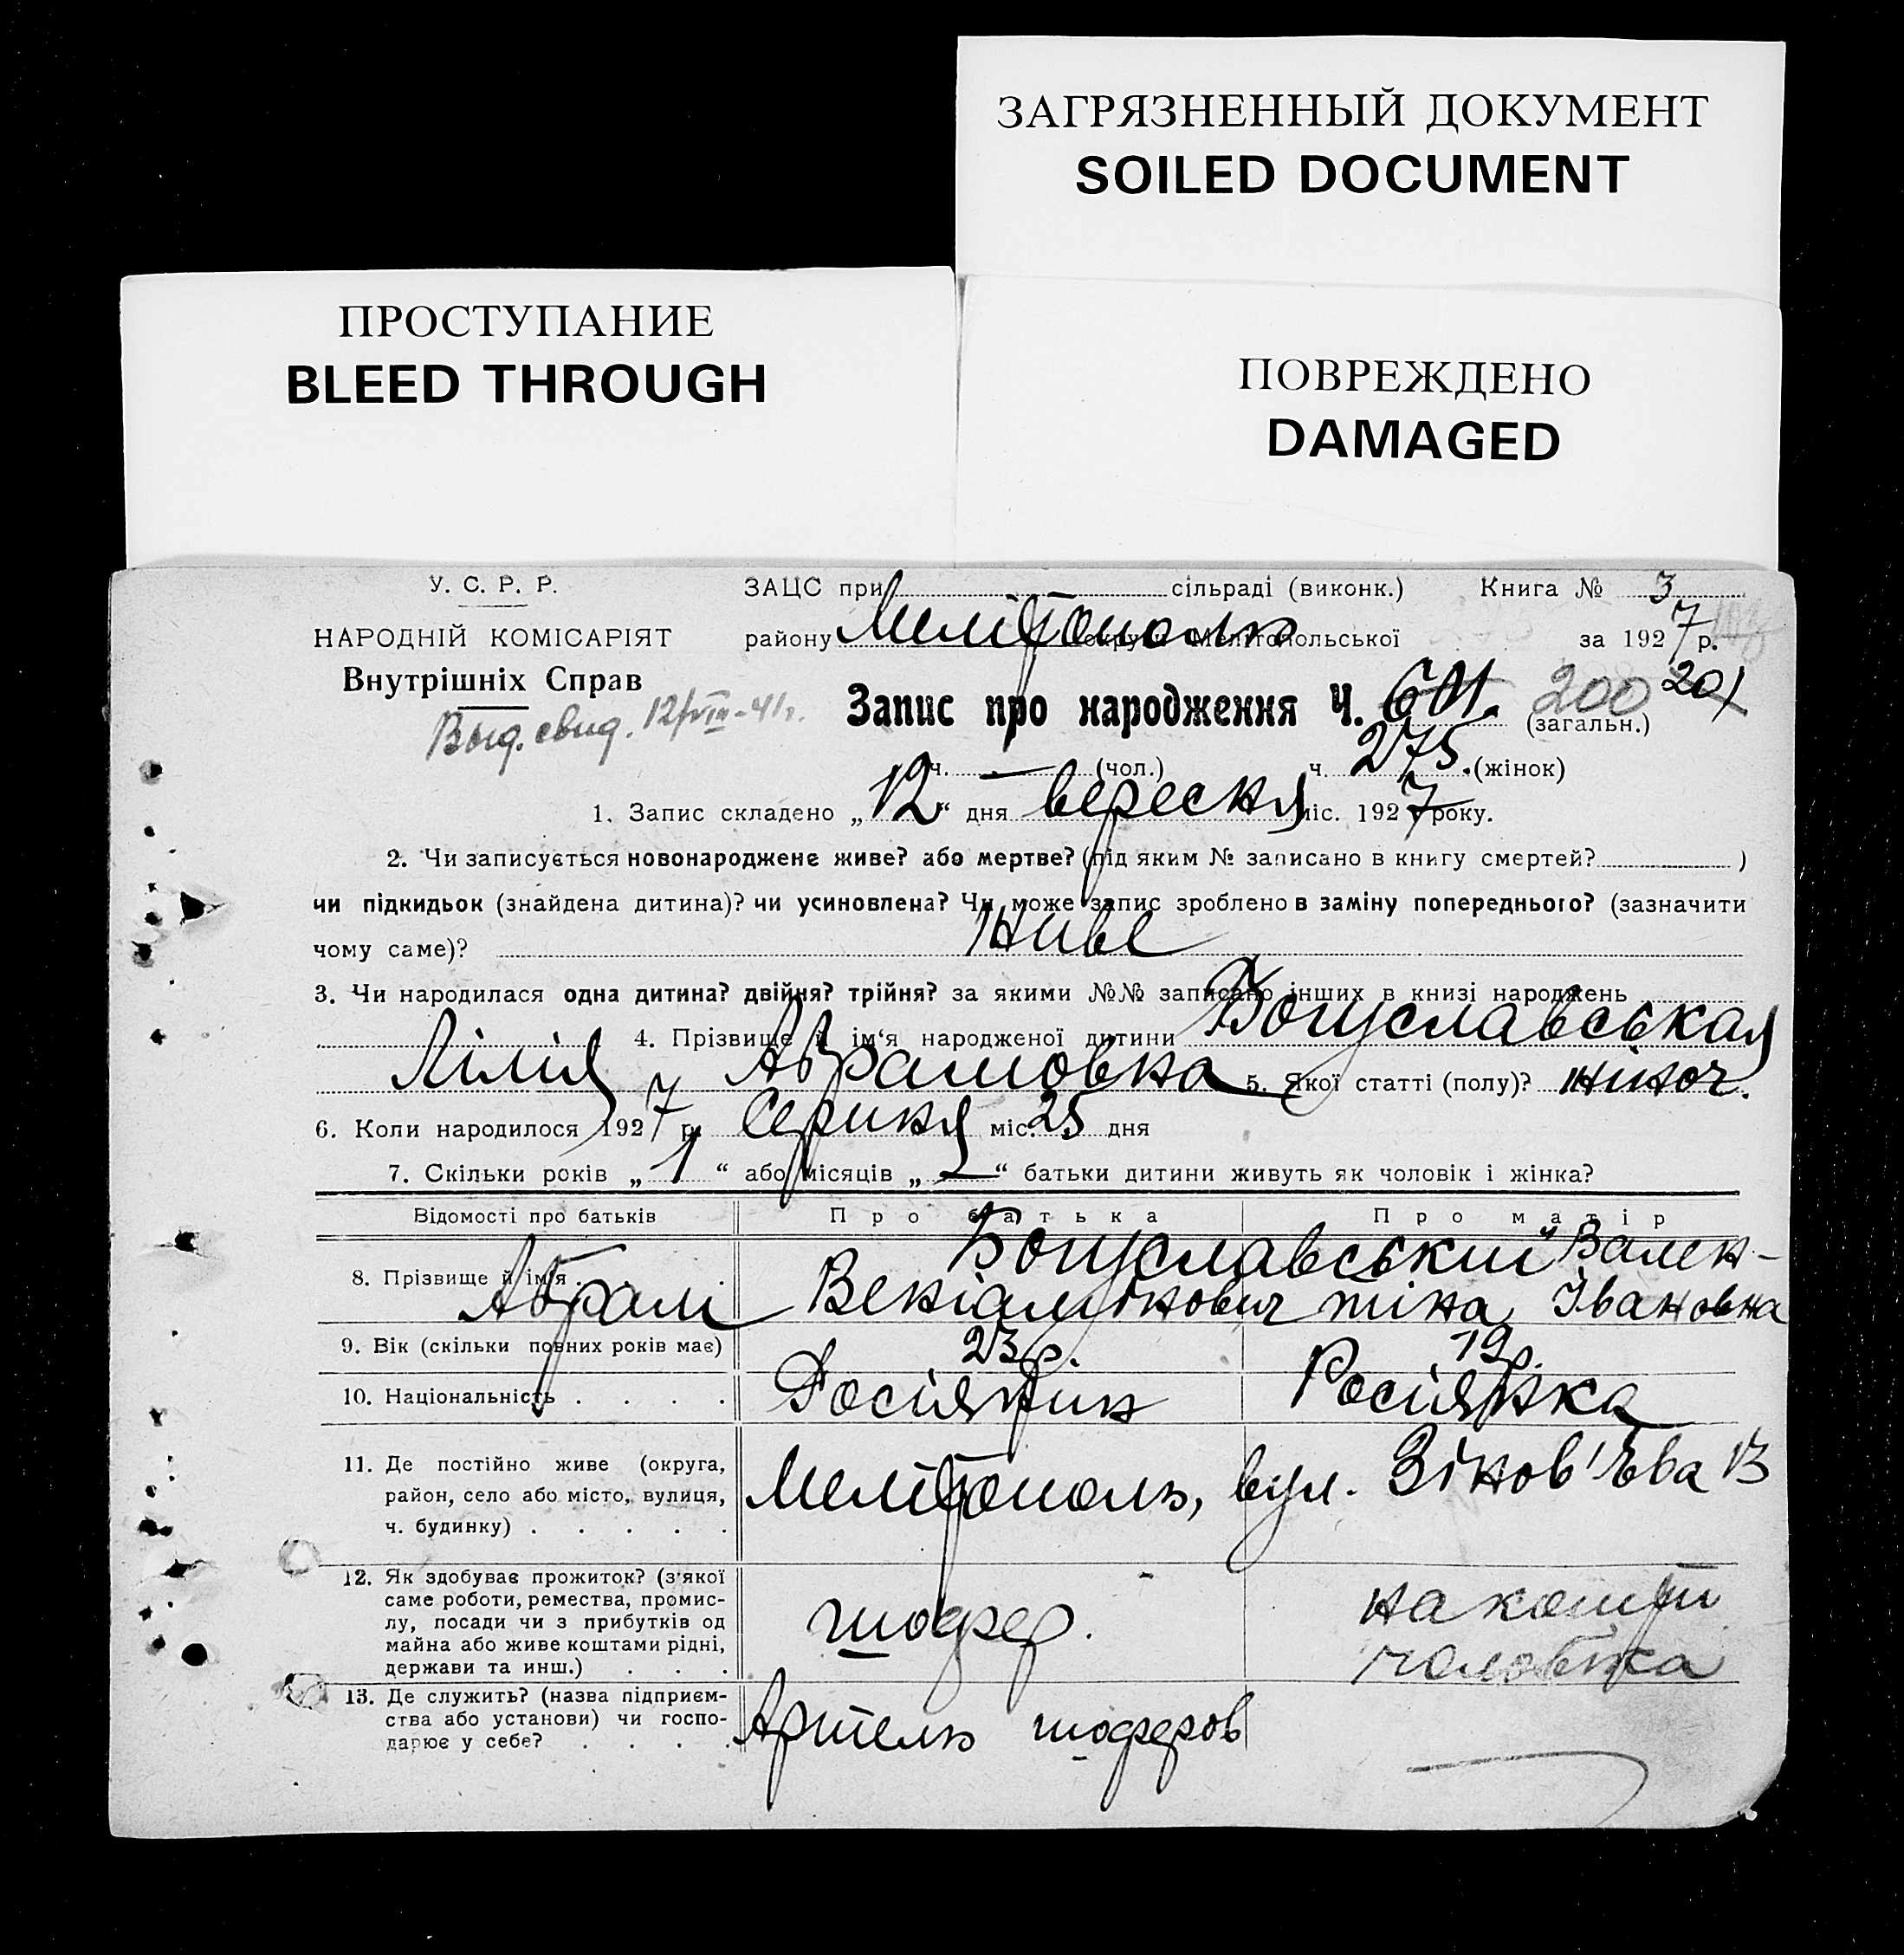 ЗАГРЯЗНЕННЫЙ ДОКУМЕНТ
SOILED DOCUMENT
ПРОСТУПАНИЕ
BLEED THROUGH
ПОВРЕЖДЕНО
DAMAGED
У. С. Р. Р.
НАРОДНІЙ КОМІСАРІЯТ
Внутрішніх Справ
Выд. свид. 12/VIII-41г.
ЗАЦС при сільраді (виконк.) Книга № 3
району Мелітополь округи Мелітопольської за 1927 р.
Запис про народження Ч. 601. 200 201
(загальн.)
ч. — (чол.) ч. 275. (жінок)
1. Запис складено „12“ дня вересня міс. 1927 року.
2. Чи записується новонароджене живе? або мертве? (під яким № записано в книгу смертей? )
чи підкидьок (знайдена дитина)? чи усиновлена? Чи може запис зроблено в заміну попереднього? (зазначити
чому саме)? Живе
3. Чи народилася одна дитина? двійня? трійня? за якими №№ записано інших в книзі народжень
4. Прізвище й ім‘я народженої дитини Богуславськая
Лілія Абрамовна 5. Якої статті (полу)? жіноч.
6. Коли народилося 1927 р. Серпня міс. 25 дня
7. Скільки років „1“ або місяців „—“ батьки дитини живуть як чоловік і жінка?
Відомості про батьків Про батька Про матір
8. Прізвище й ім‘я Богуславський Вален-
Абрам Веніамінович тіна Івановна
9. Вік (скільки повних років має) 23 р. 19 р.
10. Національність Росіянин Росіянка
11. Де постійно живе (округа,
район, село або місто, вулиця,
ч. будинку) Мелітополь, вул. Зінов'єва 13
12. Як здобуває прожиток? (з‘якої
саме роботи, ремества, промис-
лу, посади чи з прибутків од
майна або живе коштами рідні,
держави та инш.) шофер. на кошти
чоловіка
13. Де служить? (назва підприєм-
ства або установи) чи госпо-
дарює у себе? Артель шоферов